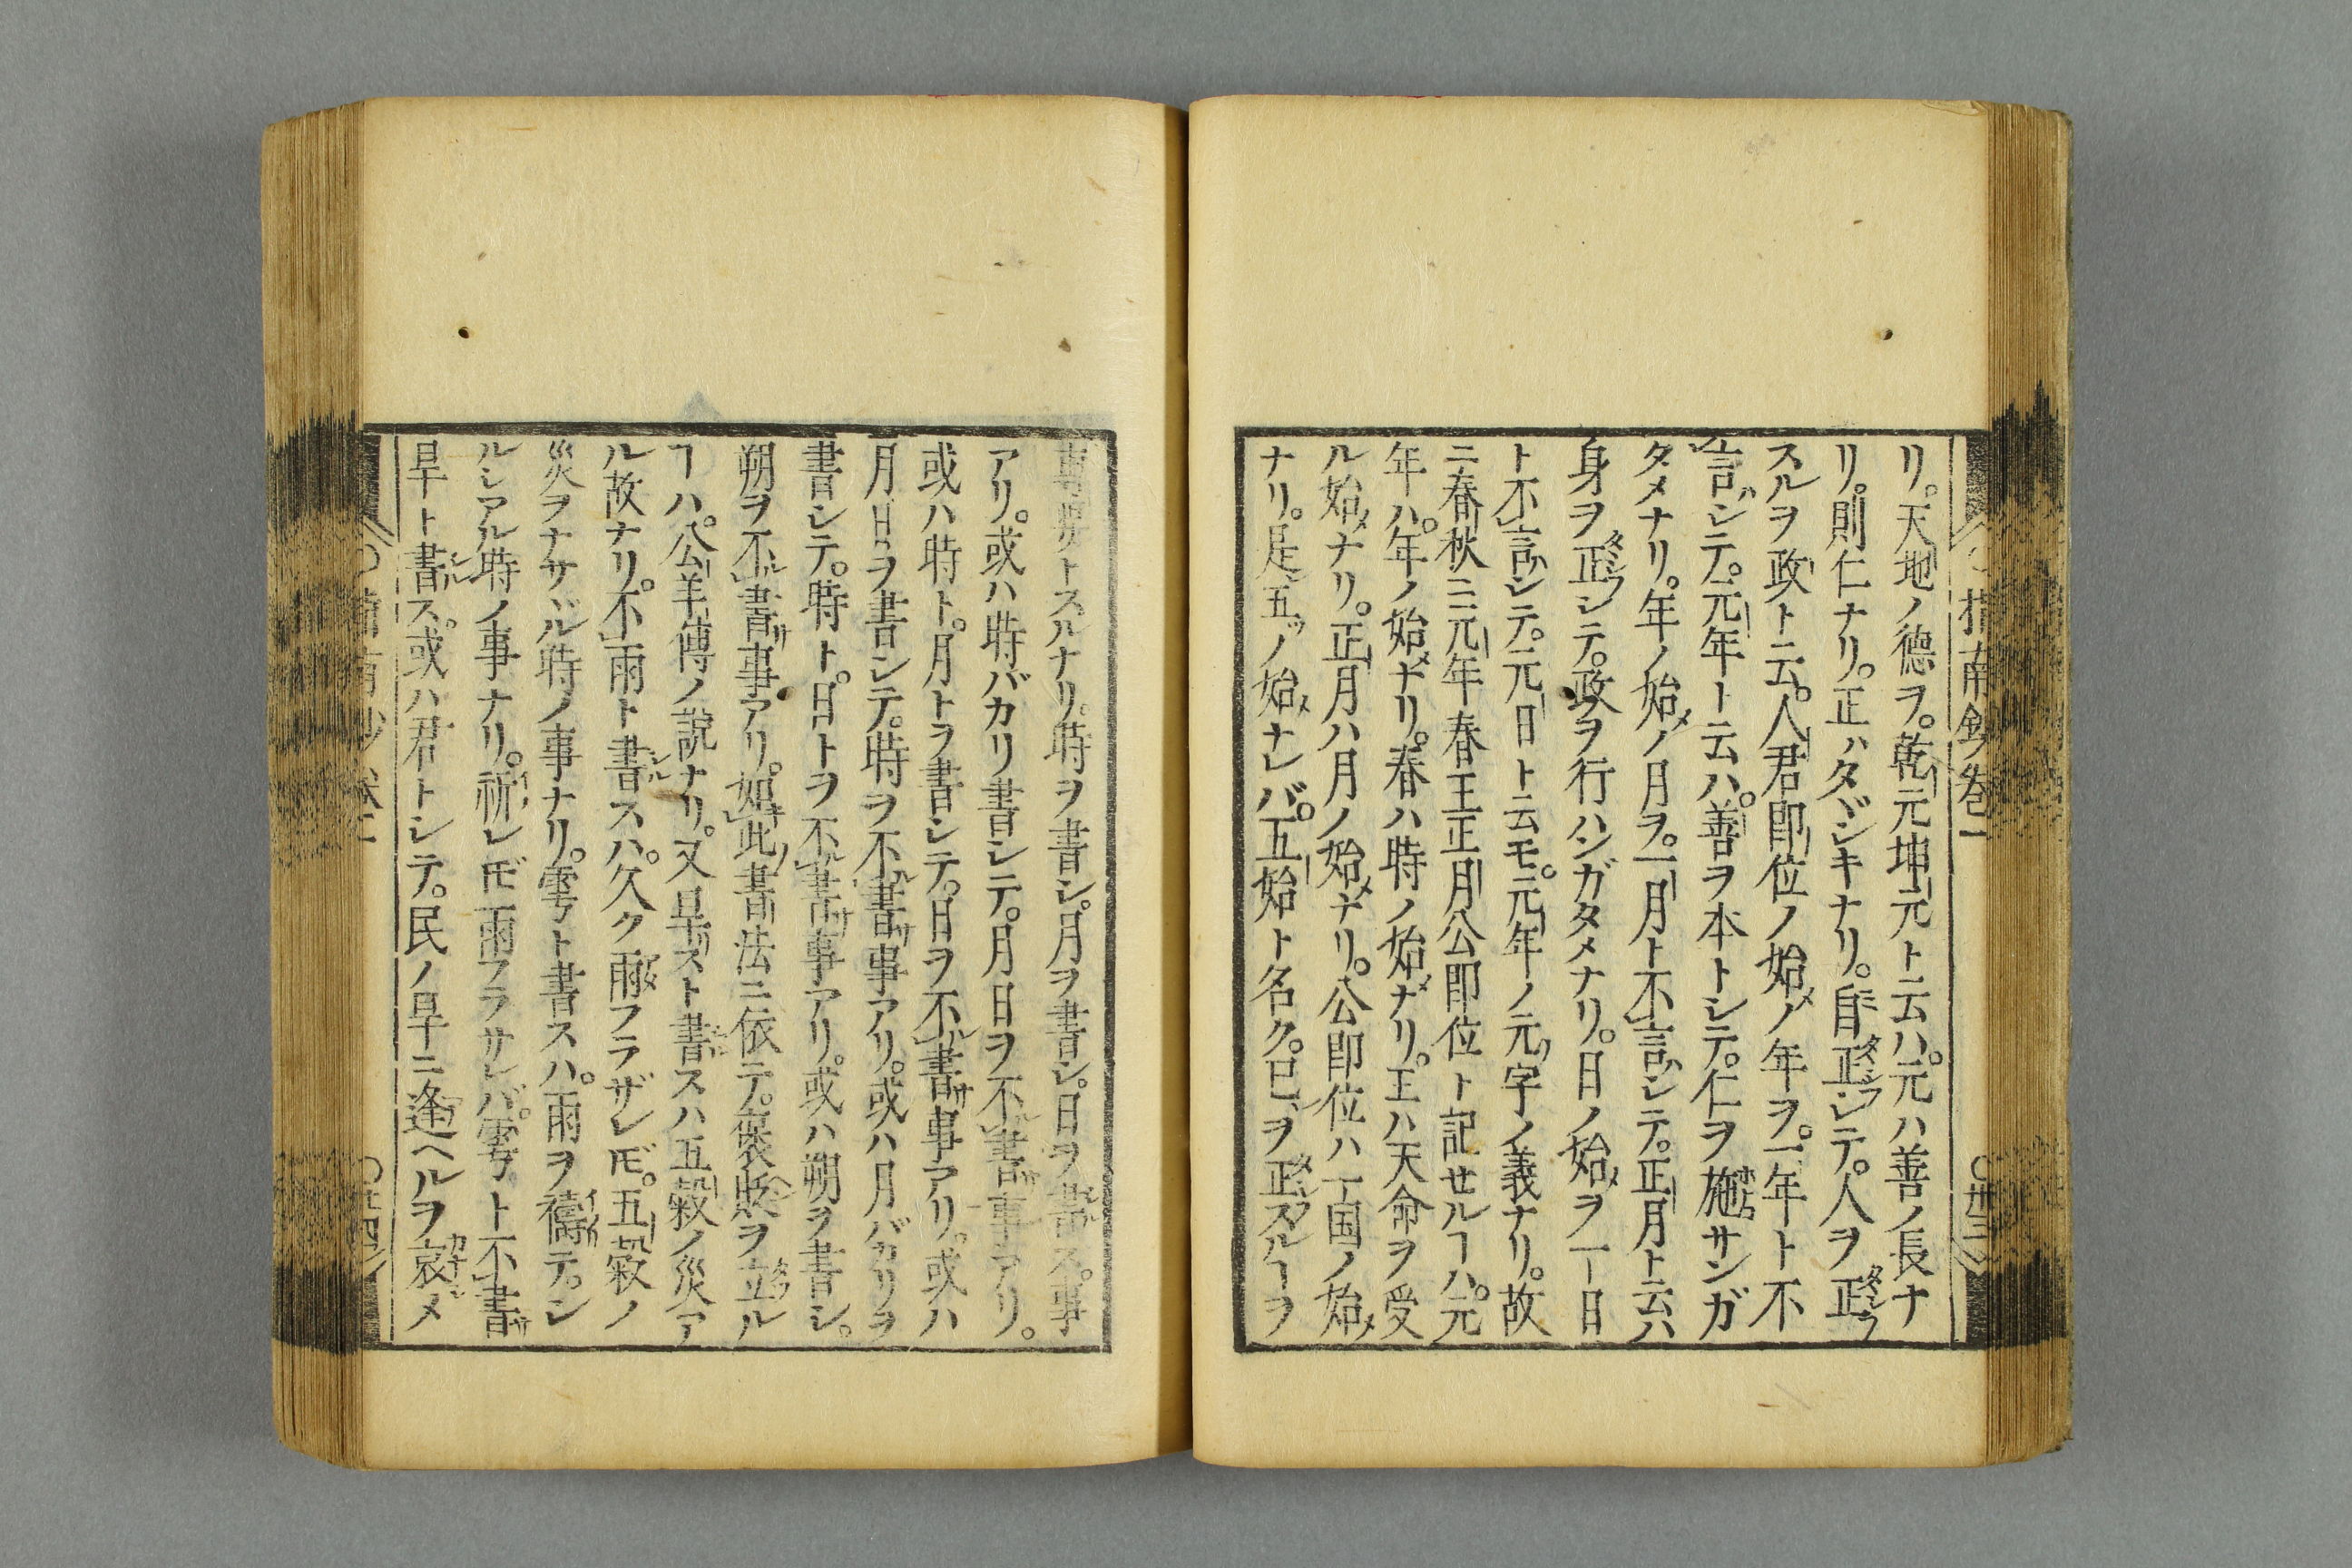 指南鈔巻一
〇卅三
リ。天地ノ德ヲ。乾元坤元ト云ハ。元ハ善ノ長ナ
リ。則仁ナリ。正ハタヾシキナリ。自正シテ。人ヲ正
スルヲ政ト云。人君即位ノ始メノ年ヲ。一年ト不
言シテ。元年ト云ハ。善ヲ本トシテ。仁ヲ施サンガ
タメナリ。年ノ始メノ月ヲ。一月ト不言シテ。正月ト云ハ
身ヲ正シテ。政ヲ行ハンガタメナリ。日ノ始メヲ一日
ト不言シテ。元日ト云モ。元年ノ元字ノ義ナリ。故
ニ春秋ニ元年春王正月公即位ト記セルヿハ。元
年ハ。年ノ始メナリ。春ハ時ノ始メナリ。王ハ天命ヲ受
ル始メナリ。正月ハ月ノ始メナリ。公即位ハ一国ノ始メ
ナリ。是五ツノ始メナレバ。五始ト名ク。已ヲ正スルヿヲ
専要トスルナリ。時ヲ書シ。月ヲ書シ。日ヲ書ス。事
アリ。或ハ時バカリ書シテ。月日ヲ不書事アリ。
或ハ時ト。月トヲ書シテ。日ヲ不書事アリ。或ハ
月日ヲ書シテ。時ヲ不書事アリ。或ハ月バカリヲ
書シテ。時ト。日トヲ不書事アリ。或ハ朔ヲ書シ。
朔ヲ不書事アリ。如此書法ニ依テ。褒貶ヲ立ル
ヿハ。公羊傳ノ説ナリ。又旱スト書スハ五穀ノ災ア
ル故ナリ。不雨ト書スハ。久ク雨フラザレ𪜈。五穀ノ
災ヲナサヾル時ノ事ナリ。雩ト書スハ。雨ヲ禱テ。シ
ルシアル時ノ事ナリ。祈レ𪜈雨フラサレバ。雩ト不書
旱ト書ス。或ハ君トシテ。民ノ旱ニ逢ヘルヲ哀メ
〇卅四